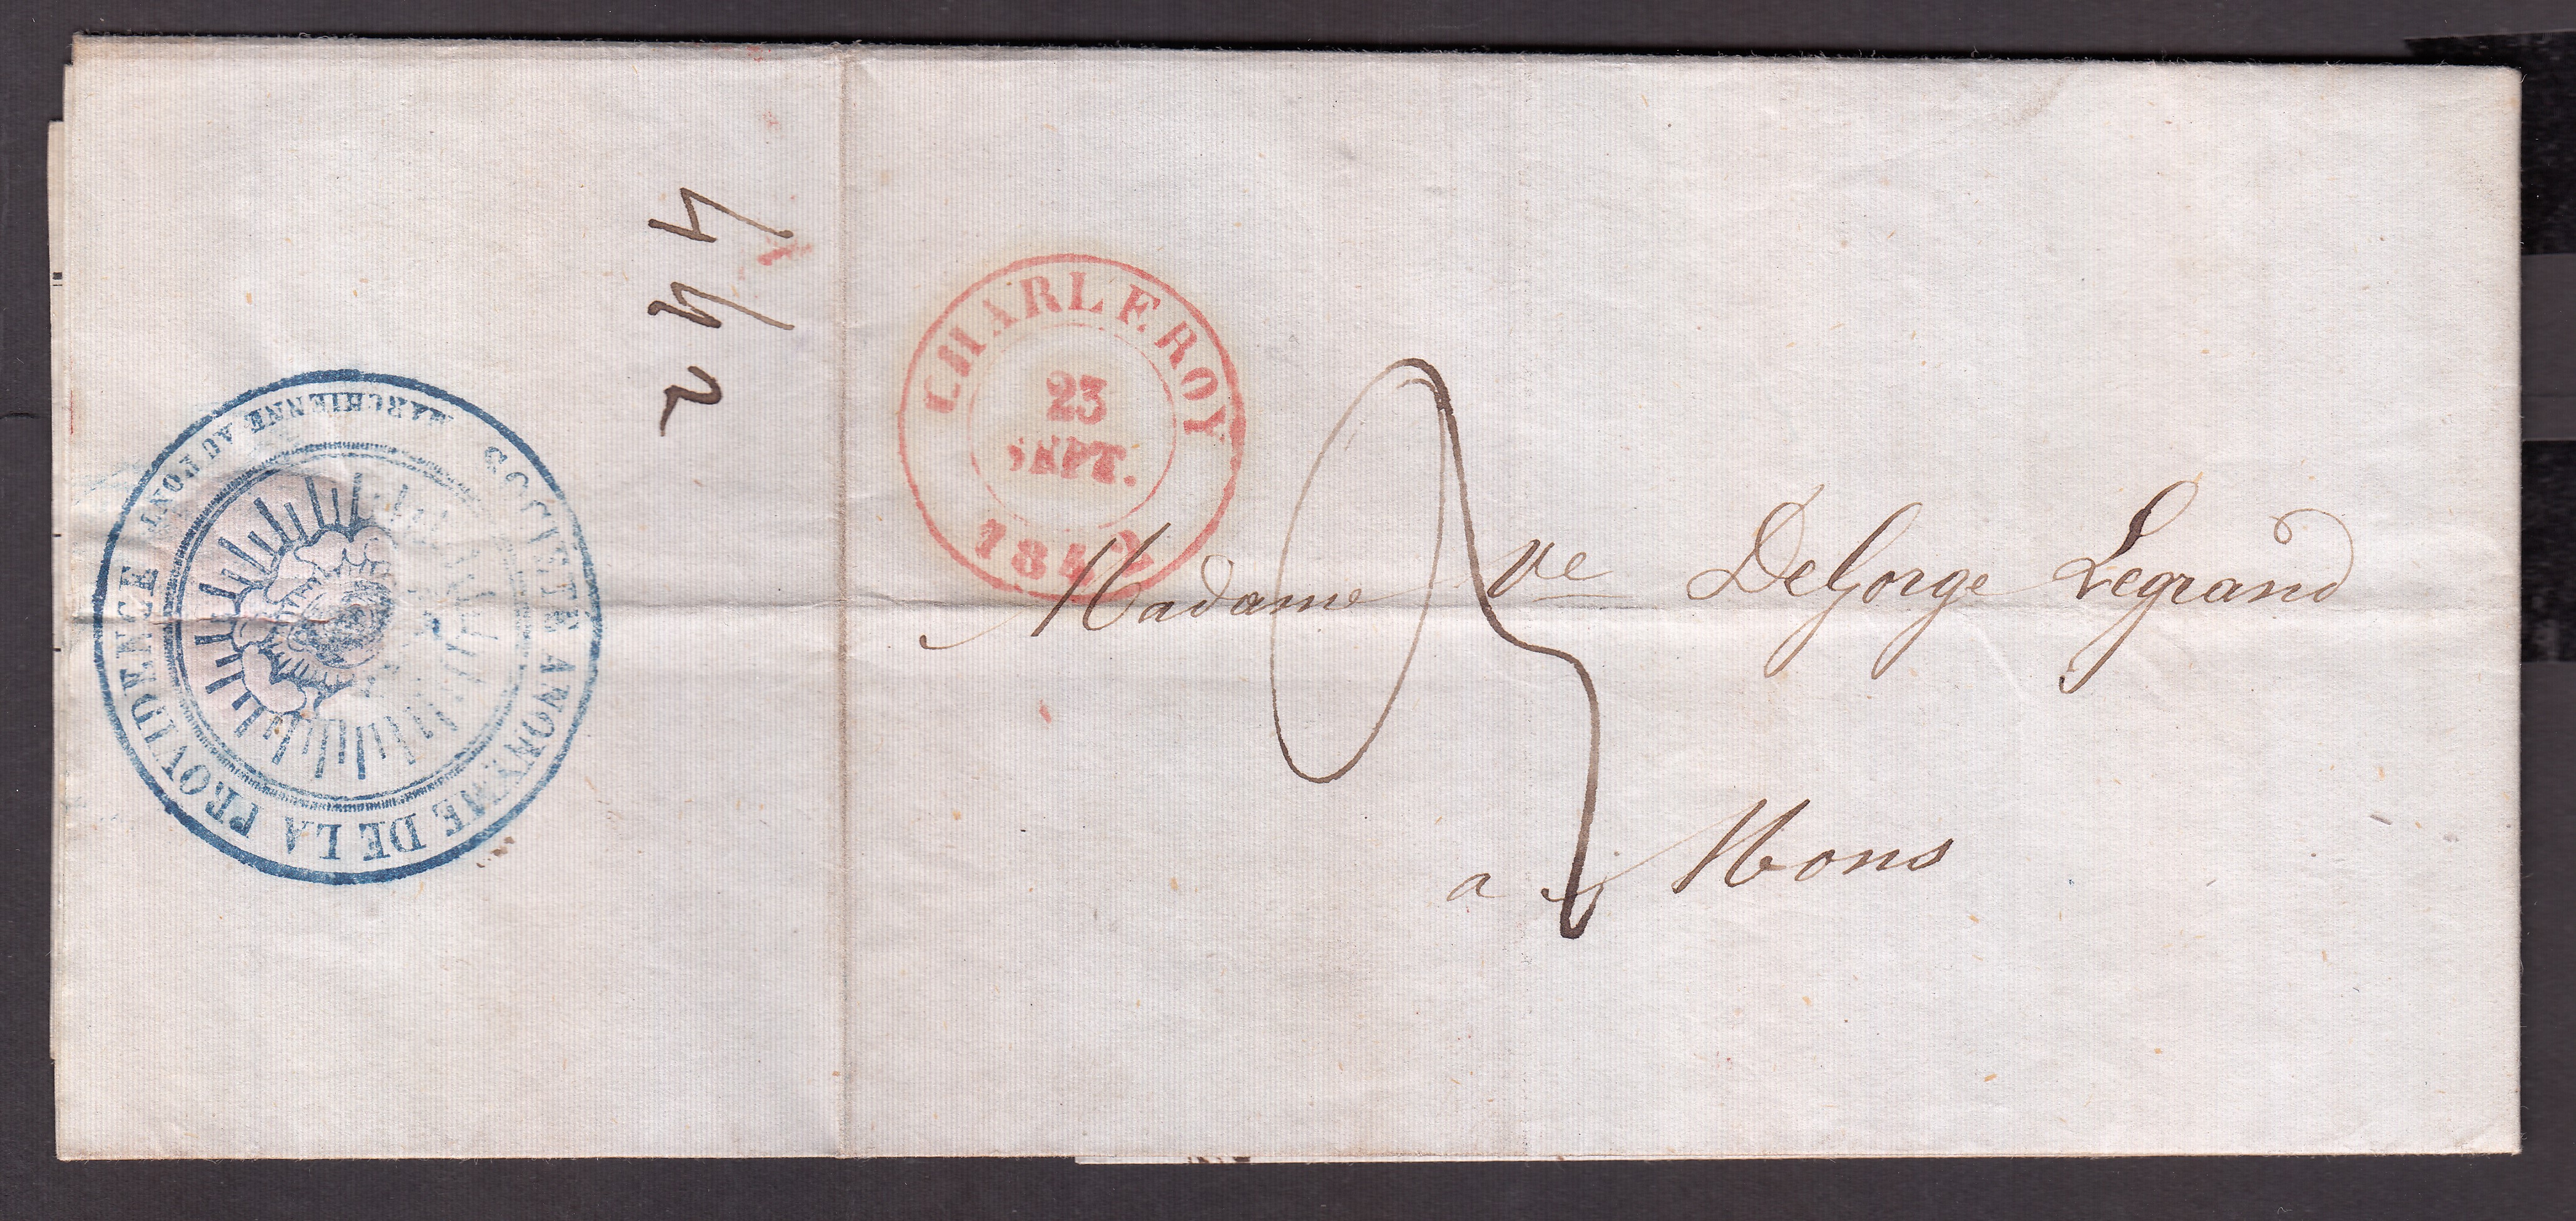 SOCIÉTÉ ANONYME DE LA PROVIDENCE
MARCHIENNE AU PONT
CHARLEROY
23
SEPT.
1842
Madame Ve DeGorge Legrand
a Mons